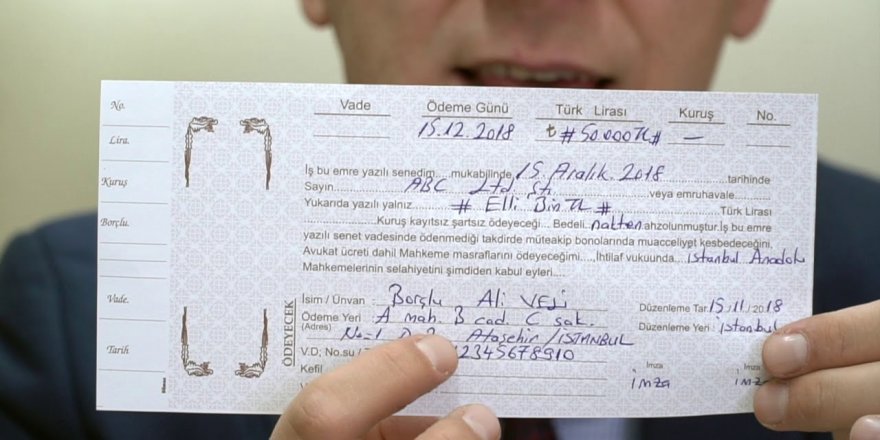 No.
Lira.
Kuruş
Borçlu.
Vade.
Tarih
Vade Ödeme Günü Türk Lirası Kuruş No.
15.12.2018 ₺ #50.000TL# —
İş bu emre yazılı senedim.... mukabilinde 15 Aralık. 2018 tarihinde
Sayın ABC Ltd. Şti. veya emruhavale
Yukarıda yazılı yalnız # Elli Bin TL # Türk Lirası
Kuruş kayıtsız şartsız ödeyeceği.... Bedeli nakten ahzolunmuştur.İş bu emre
yazılı senet vadesinde ödenmediği takdirde müteakip bonolarında muacceliyet kesbedeceğini,
Avukat ücreti dahil Mahkeme masraflarını ödeyeceğimi....,İhtilaf vukuunda.... istanbul Anadolu
Mahkemelerinin selahiyetini şimdiden kabul eyleri....
ÖDEYECEK
İsim / Ünvan : Borçlu Ali VELİ
Ödeme Yeri : A mah. B cad. C sok.
(Adres) No=1 Ataşehir/İSTANBUL
V.D; No.su / 12345678910
Kefil
Düzenleme Tar 15/11/2018
Düzenleme Yeri : istanbul
İmza İmza
imza